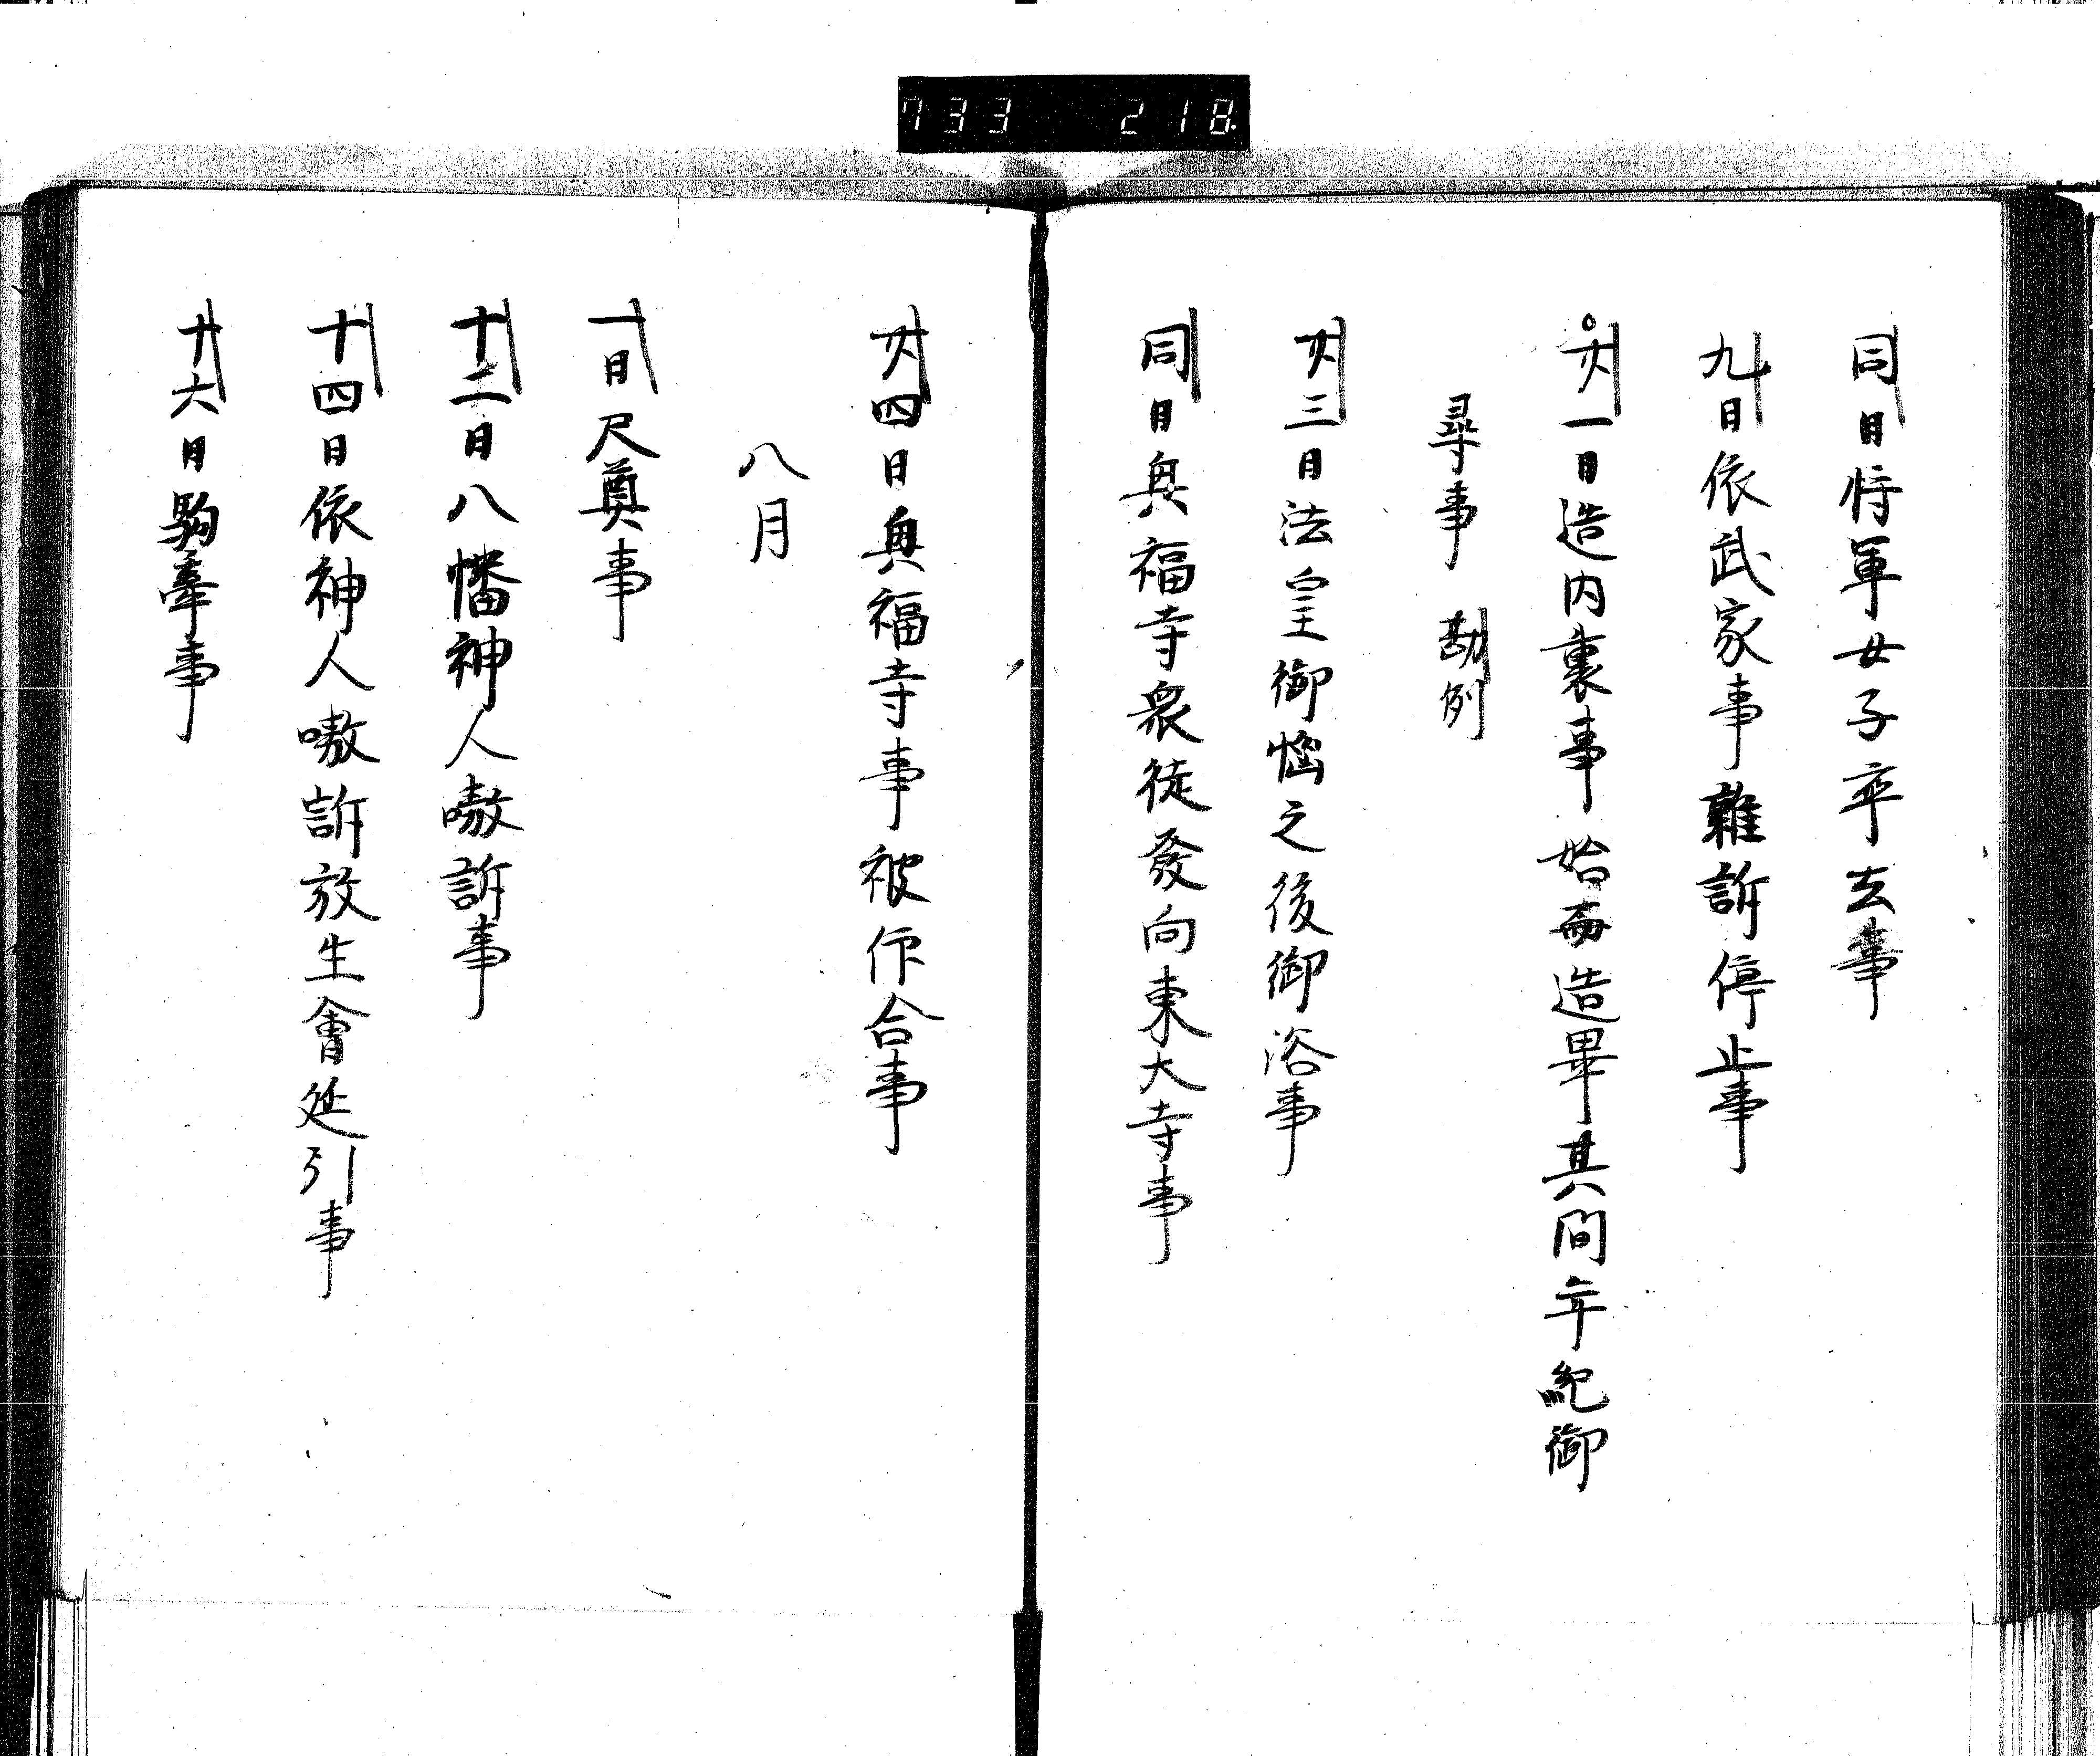 733 218
同日将軍女子卒去事
九日依武家事雜訴停止事
廿一日造内裏事始而造畢其間年紀御
尋事 勘例
廿三日法皇御惱之後御浴事
同日興福寺衆徒發向東大寺事
廿四日興福寺事被仰合事
八月
一日尺奠事
十二日八幡神人嗷訴事
十四日依神人嗷訴放生會延引事
十六日駒牽事